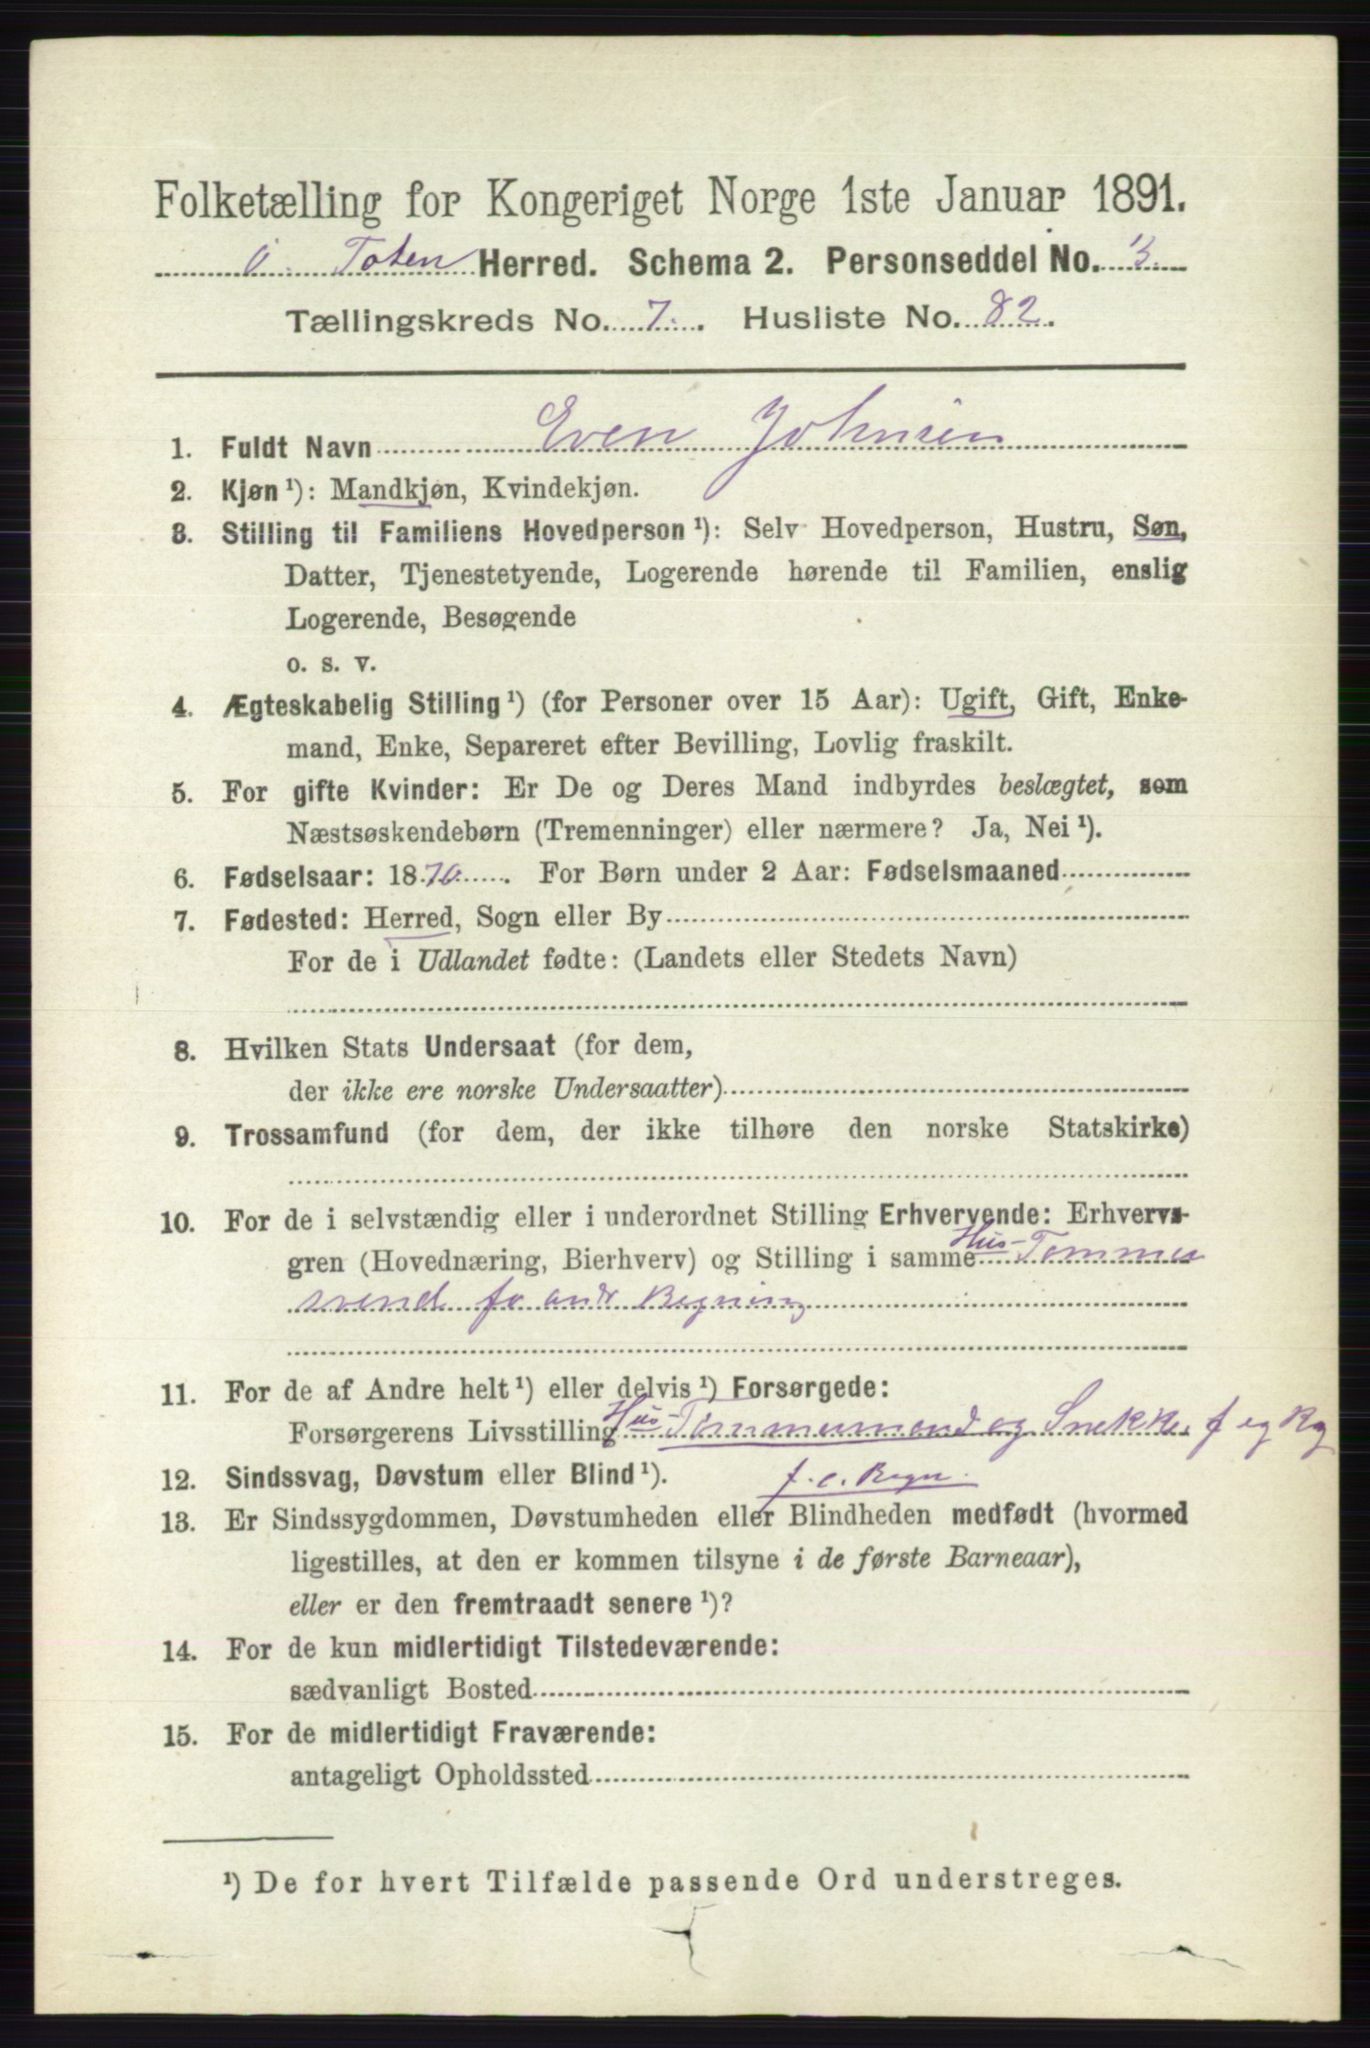 Folketælling for Kongeriget Norge 1ste Januar 1891.
Ø. Toten Herred. Schema 2. Personseddel No. 3.
Tællingskreds No. 7. Husliste No. 82.
1. Fuldt Navn Even Johnsen
2. Kjøn ¹): Mandkjøn, Kvindekjøn.
3. Stilling til Familiens Hovedperson ¹): Selv Hovedperson, Hustru, Søn,
Datter, Tjenestetyende, Logerende hørende til Familien, enslig
Logerende, Besøgende
o. s. v.
4. Ægteskabelig Stilling ¹) (for Personer over 15 Aar): Ugift, Gift, Enke-
mand, Enke, Separeret efter Bevilling, Lovlig fraskilt.
5. For gifte Kvinder: Er De og Deres Mand indbyrdes beslægtet, som
Næstsøskendebørn (Tremenninger) eller nærmere? Ja, Nei ¹).
6. Fødselsaar: 1870. For Børn under 2 Aar: Fødselsmaaned
7. Fødested: Herred, Sogn eller By
For de i Udlandet fødte: (Landets eller Stedets Navn)
8. Hvilken Stats Undersaat (for dem,
der ikke ere norske Undersaatter)
9. Trossamfund (for dem, der ikke tilhøre den norske Statskirke)
10. For de i selvstændig eller i underordnet Stilling Erhvervende: Erhvervs-
gren (Hovednæring, Bierhverv) og Stilling i samme Hus-Tømmer
svend fo andr Regning
11. For de af Andre helt ¹) eller delvis ¹) Forsørgede:
Forsørgerens Livsstilling Hus-Tømmermand og Snekker f eg Rg
12. Sindssvag, Døvstum eller Blind ¹). f. e. Regn.
13. Er Sindssygdommen, Døvstumheden eller Blindheden medfødt (hvormed
ligestilles, at den er kommen tilsyne i de første Barneaar),
eller er den fremtraadt senere ¹)?
14. For de kun midlertidigt Tilstedeværende:
sædvanligt Bosted
15. For de midlertidigt Fraværende:
antageligt Opholdssted
¹) De for hvert Tilfælde passende Ord understreges.